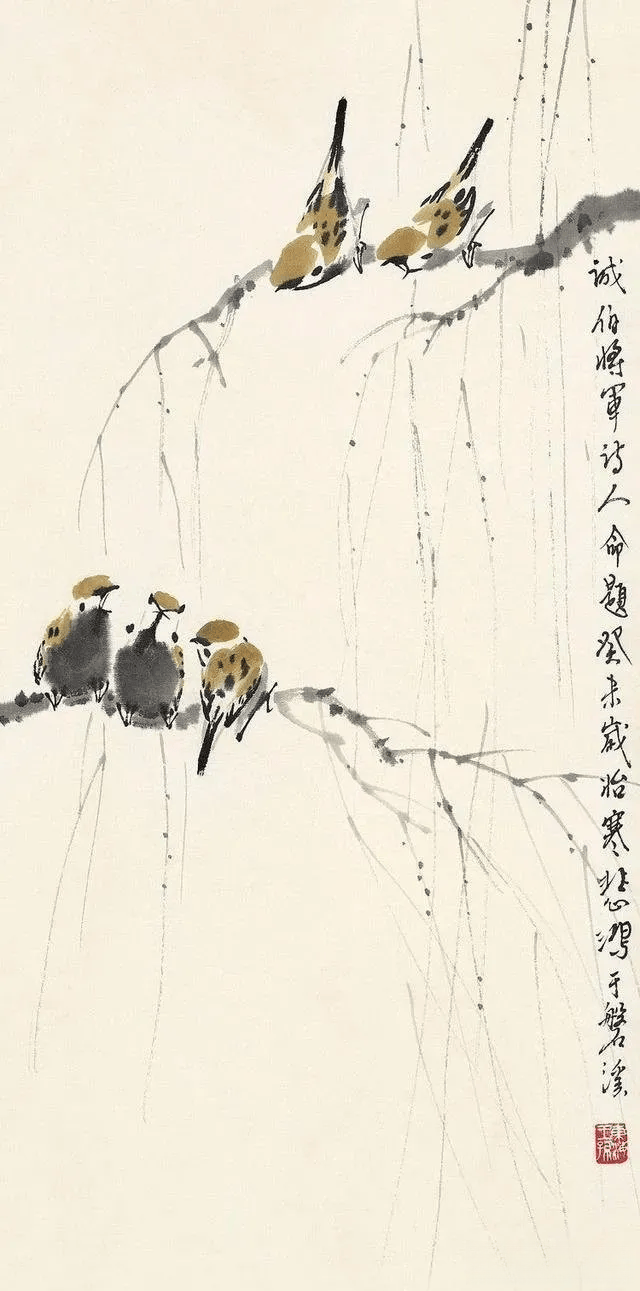 誠伯將軍詩人命題癸未歲始寒悲鴻于磐溪
東海王孫